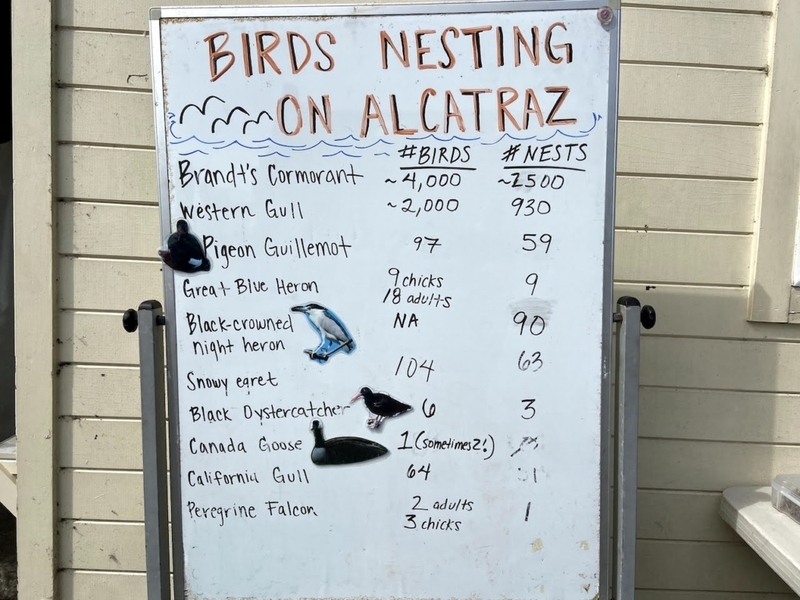 BIRDS NESTING
ON ALCATRAZ
#BIRDS #NESTS
Brandt's Cormorant ~4,000 ~2500
Western Gull ~2,000 930
Pigeon Guillemot 97 59
Great Blue Heron 9 chicks 9
18 adults
Black-crowned NA 90
night heron
Snowy egret 104 63
Black Oystercatcher 6 3
Canada Goose 1 (sometimes 2!)
California Gull 64
Peregrine Falcon 2 adults 1
3 chicks